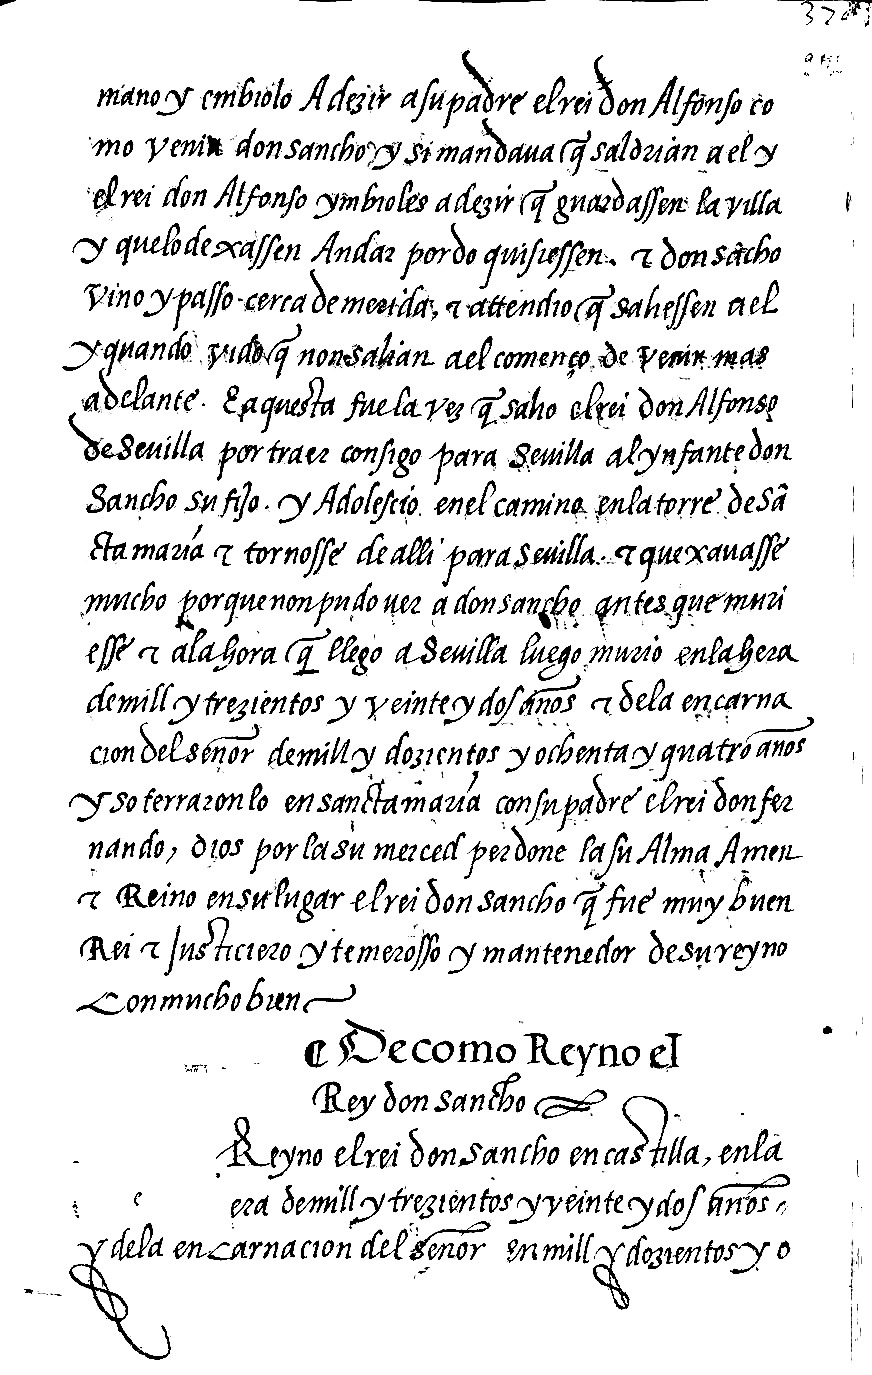 mano y embiolo A dezir a su padre el rei don Alfonso co
mo venia don sancho y si mandaua q̃ saldrian a el y
el rei don Alfonso ymbioles a dezir q̃ guardassen la villa
y que lo dexassen Andar por do quisiessen. τ don sãcho
vino y passo cerca de merida, τ attendio q̃ saliessen a el
y quando vido q̃ non salian a el començo de venir mas
adelante. Eaquesta fue la vez q̃ salio el rei don Alfonso
de Seuilla por traer consigo para Seuilla al ynfante don
Sancho su fijo. y Adolescio en el camino en la torre de Sã
cta maria τ tornosse de alli para Seuilla. τ quexauasse
mucho porque non pudo uer a don sancho antes que muri
esse τ a la hora q̃ llego a Seuilla luego murio en la hera
de mill y trezientos y veinte y dos años τ de la encarna
cion del señor de mill y dozientos y ochenta y quatro años
y soterraronlo en sancta maria con su padre el rei don fer
nando, dios por la su merced perdone la su Alma Amen
τ Reino en su lugar el rei don sancho q̃ fue muy buen
Rei τ Justiciero y temerosso y mantenedor de su reyno
Con mucho bien
¶ De como Reyno el
Rey don sancho
Reyno el rei don sancho en castilla, en la
era de mill y trezientos y veinte y dos años,
y de la encarnacion del señor en mill y dozientos y o